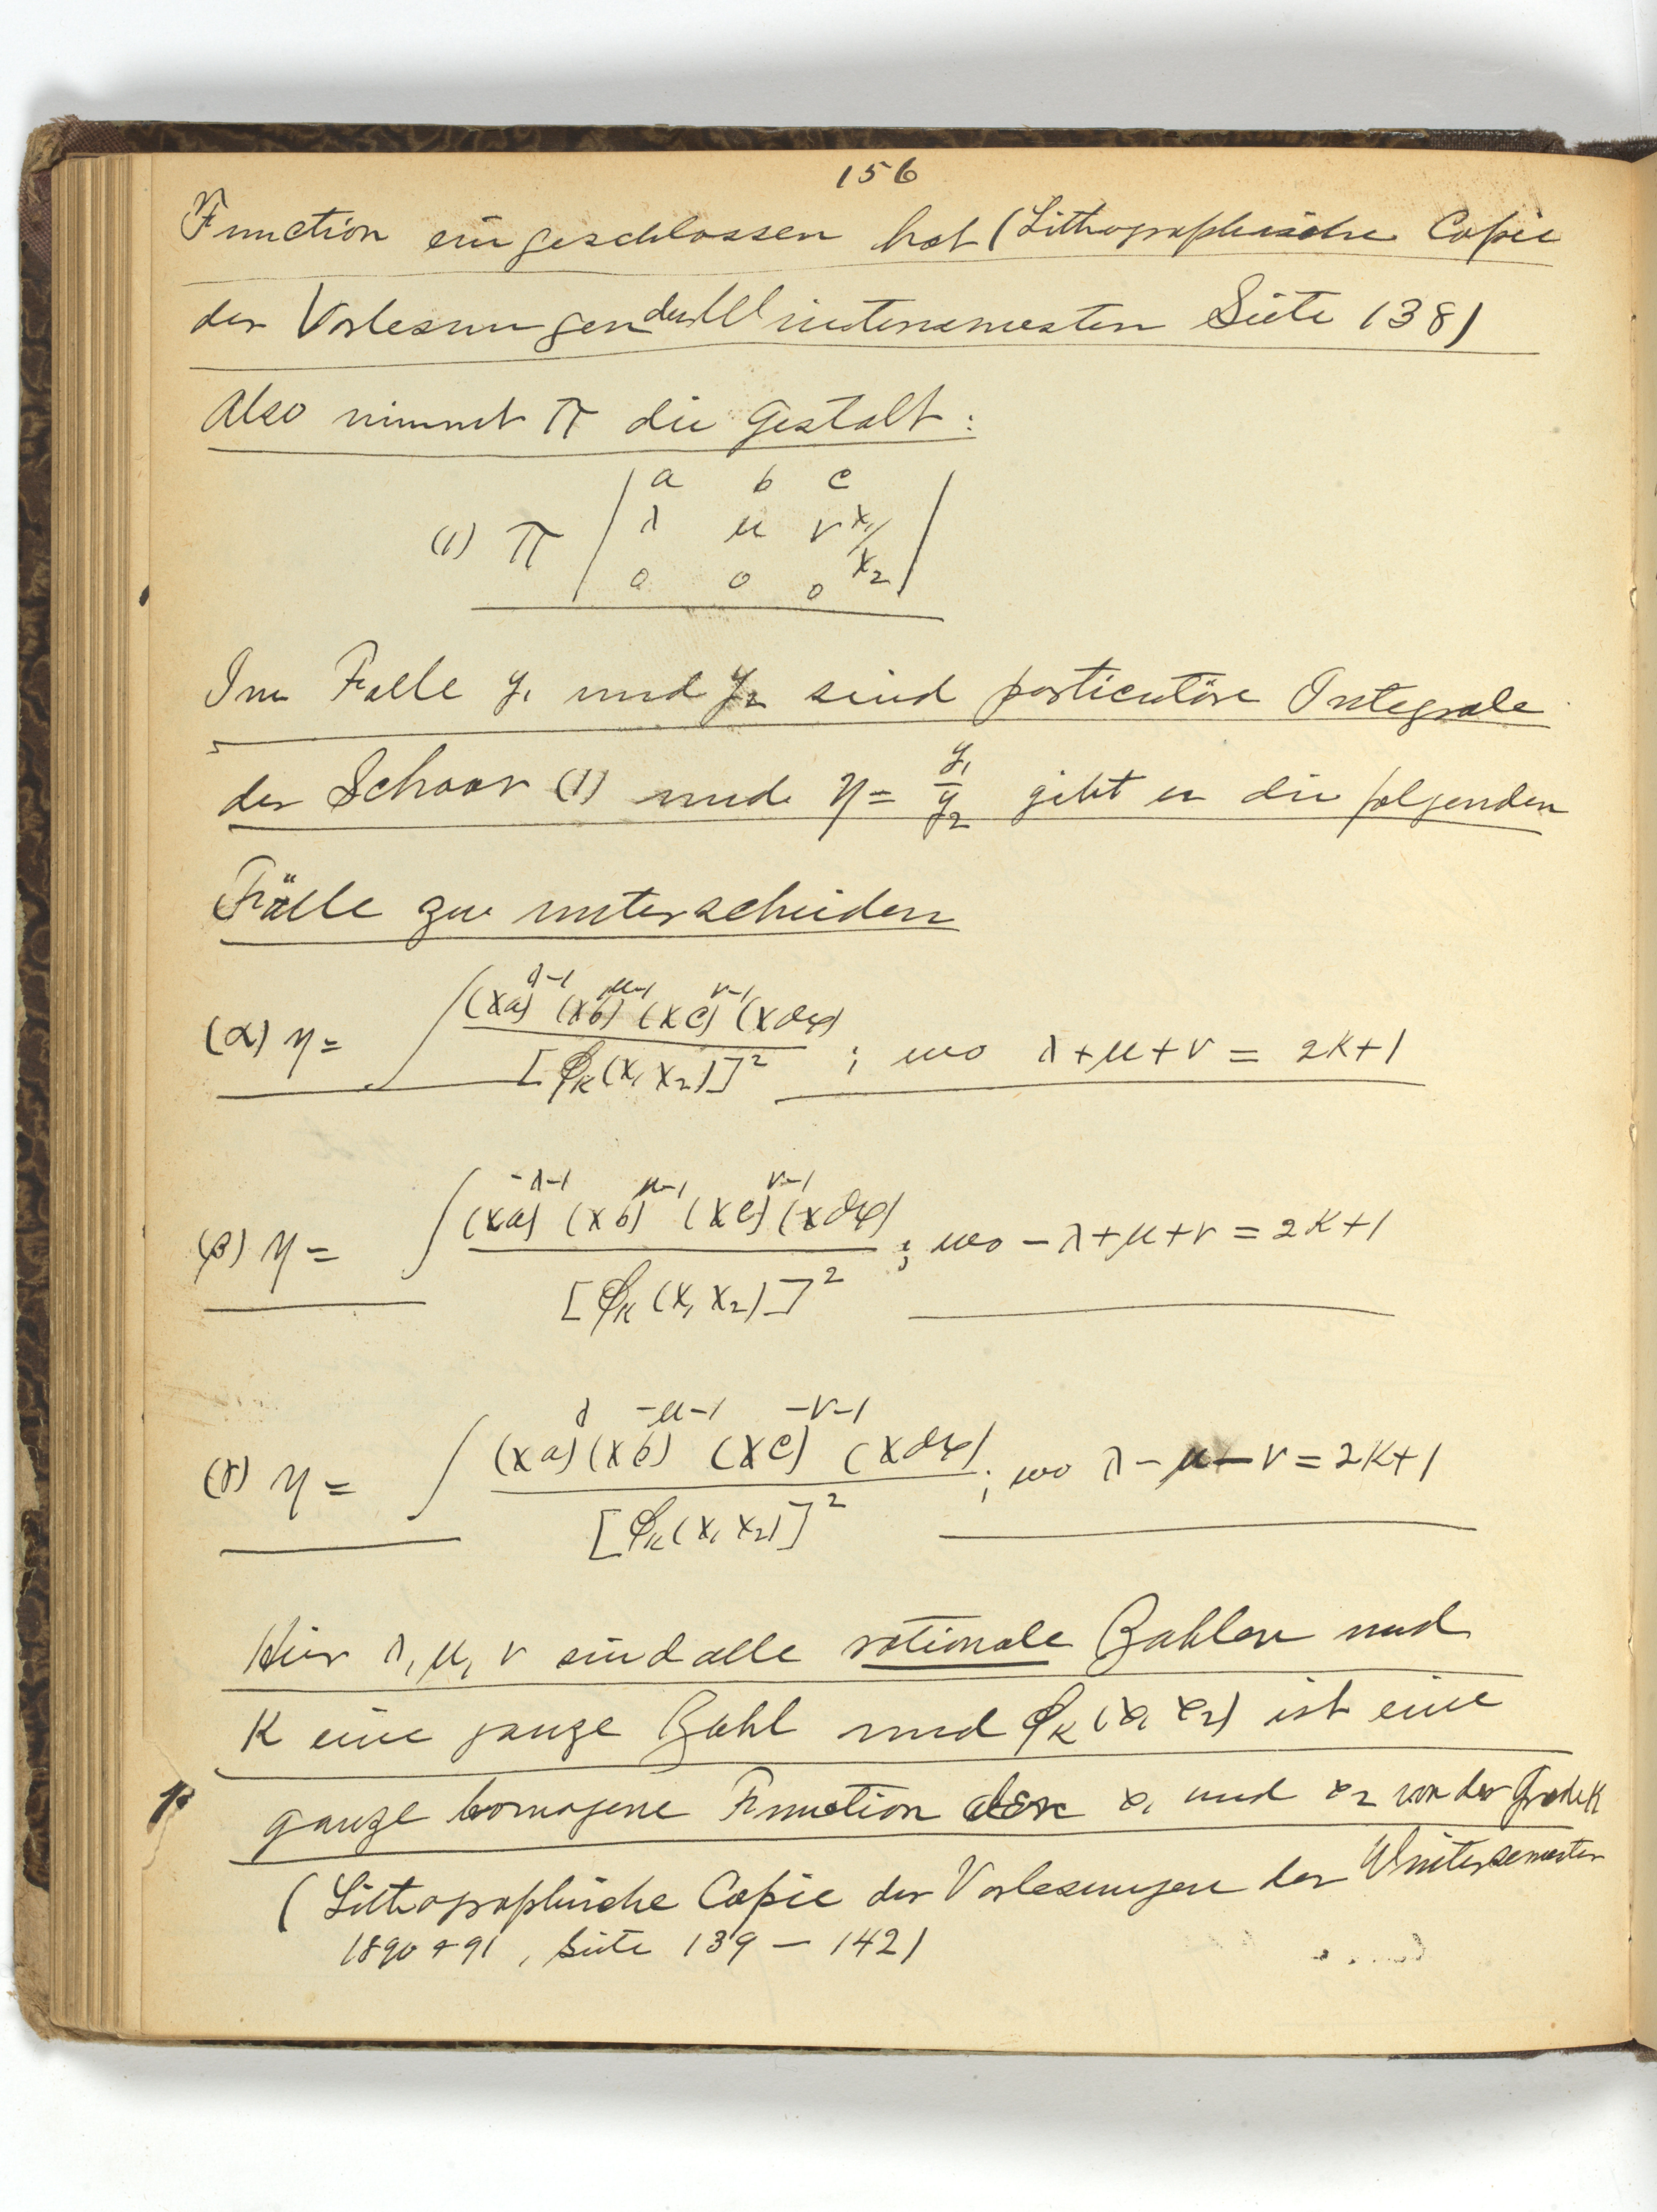 156
Function eingeschlossen hat (Lithographische Copie
der Vorlesungen des Wintersemesters Seite 138)
Also nimmt Π die Gestalt:
(1) Π | a b c
λ μ ν x₁/x₂
0 0 0 |
Im Falle y₁ und y₂ sind particuläre Integrale
der Schaar (1) und η = y₁/y₂ gibt es die folgenden
Fälle zu unterscheiden
(α) η = ∫ (xa)^{λ-1} (xb)^{μ-1} (xc)^{ν-1} (x dx) / [φ_K(x₁ x₂)]² ; wo λ+μ+ν = 2K+1
(β) η = ∫ (xa)^{-λ-1} (xb)^{μ-1} (xc)^{ν-1} (x dx) / [φ_K(x₁ x₂)]² ; wo -λ+μ+ν = 2K+1
(γ) η = ∫ (xa)^{λ} (xb)^{-μ-1} (xc)^{-ν-1} (x dx) / [φ_K(x₁ x₂)]² ; wo λ-μ-ν = 2K+1
Hier λ, μ, ν sind alle rationale Zahlen und
K eine ganze Zahl und φ_K(x₁ x₂) ist eine
ganze homogene Function der x₁ und x₂ von der Grade K
(Lithographische Copie der Vorlesungen der Wintersemester
1890 + 91, Seite 139 — 142)